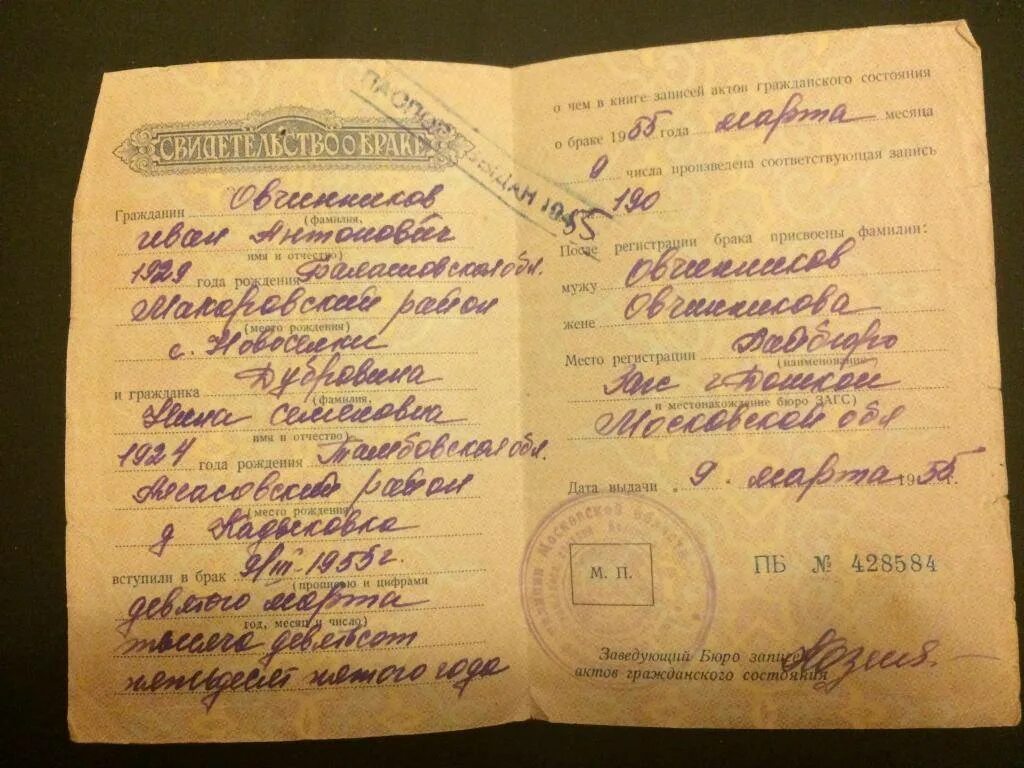 СВИДЕТЕЛЬСТВО О БРАКЕ
Гражданин Овчинников
(фамилия,
Иван Антонович
имя и отчество)
1929 года рождения Балашовская обл.
Макаровский район
(место рождения)
с. Новосёлки
и гражданка Дубровина
(фамилия,
Нина Семеновна
имя и отчество)
1924 года рождения Тамбовская обл.
район
(место рождения)
д Кадыковка
вступили в брак 9/III-1955г.
(прописью и цифрами
девятого марта
год, месяц и число)
тысяча девятсот
пятьдесят пятого года
ПАСПОРТ ВЫДАН 1955
о чем в книге записей актов гражданского состояния
о браке 1955 года марта месяца
9 числа произведена соответствующая запись
190
После регистрации брака присвоены фамилии:
мужу Овчинников
жене Овчинникова
Место регистрации
(наименование
Загс г
и местонахождение бюро ЗАГС)
Московской обл
Дата выдачи 9 марта 1955 г.
М. П.
ПБ № 428584
Заведующий Бюро записей
актов гражданского состояния